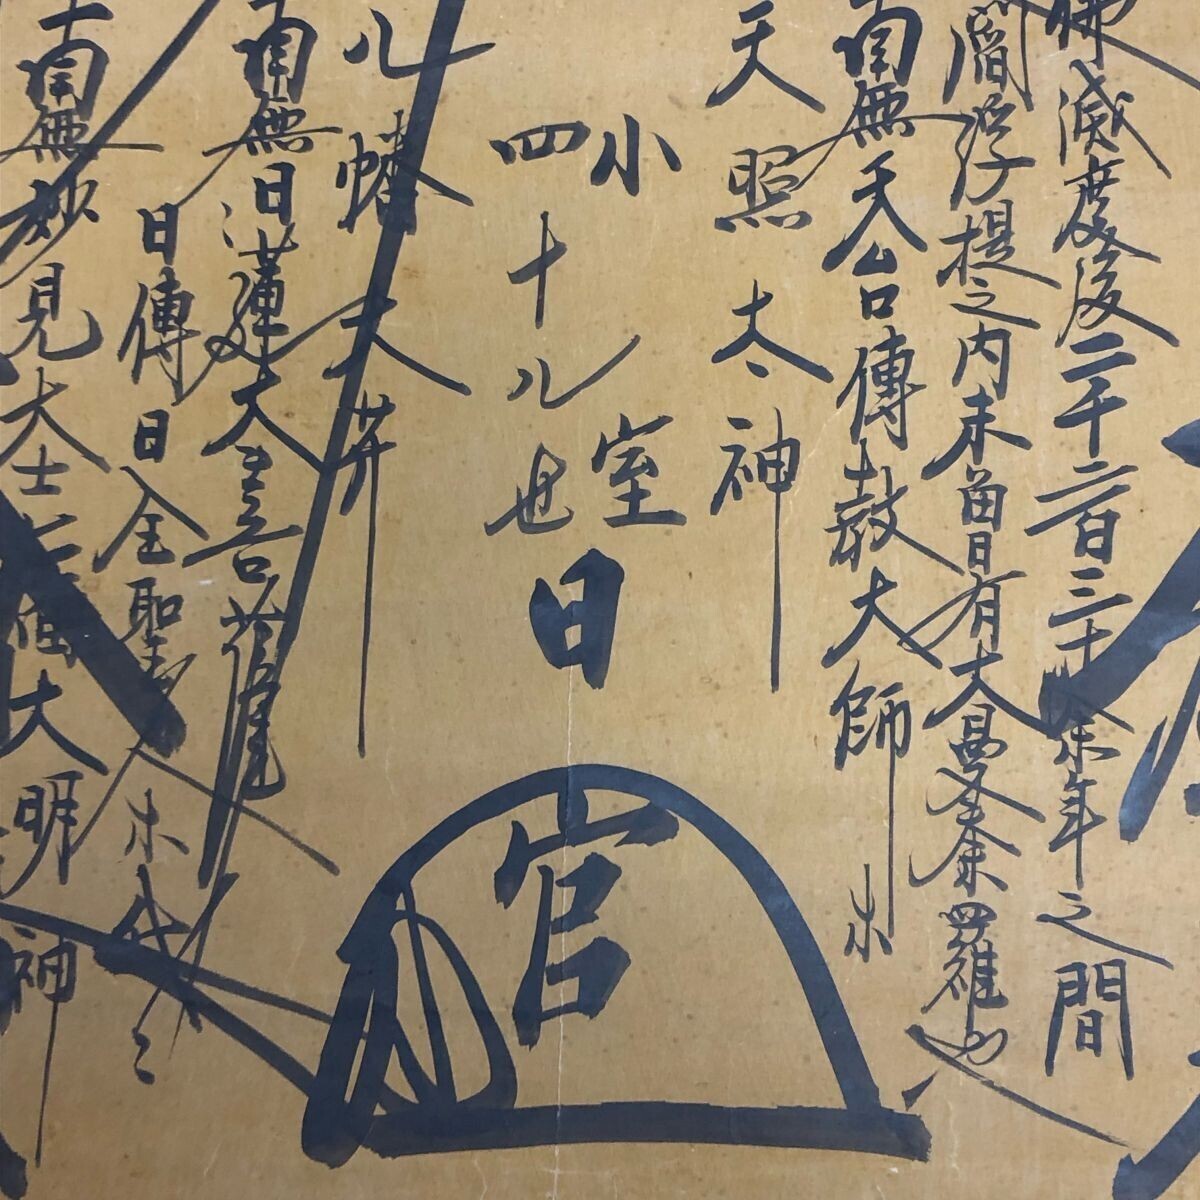 佛滅度後二千二百三十余年之間
閻浮提之内未曾有大曼荼羅也
南無天台傳教大師
天照太神
小室
四十八世
日官
八幡大菩薩
南無日蓮大菩薩
日傳日全聖
南無妙見大士 大明神